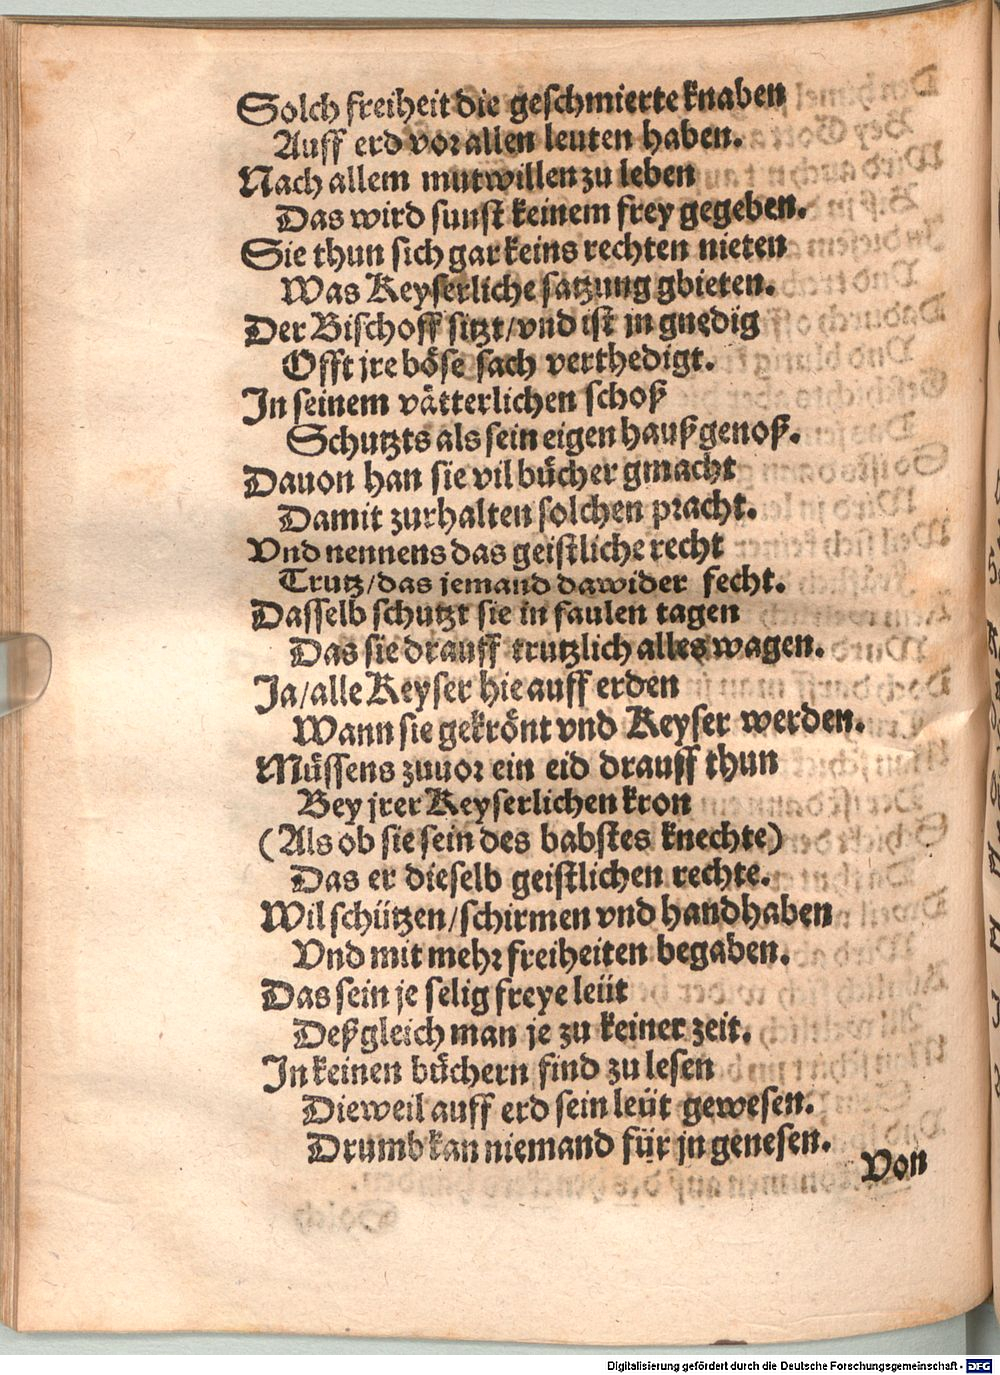 Solch freiheit die geschmierte knaben
Auff erd vor allen leuten haben.
Nach allem mutwillen zu leben
Das wird sunst keinem frey gegeben.
Sie thun sich gar keins rechten nieten
Was Keyserliche satzung gbieten.
Der Bischoff sitzt/vnd ist jn gnedig
Offt jre böse sach verthedigt.
In seinem vätterlichen schoß
Schutzts als sein eigen haußgenoß.
Dauon han sie vil bücher gmacht
Damit zurhalten solchen pracht.
Vnd nennens das geistliche recht
Trutz/das jemand dawider fecht.
Dasselb schutzt sie in faulen tagen
Das sie drauff trutzlich alles wagen.
Ja/alle Keyser hie auff erden
Wann sie gekrönt vnd Keyser werden.
Müssens zuuor ein eid drauff thun
Bey jrer Keyserlichen kron
(Als ob sie sein des babstes knechte)
Das er dieselb geistlichen rechte.
Wil schützen/schirmen vnd handhaben
Vnd mit mehr freiheiten begaben.
Das sein je selig freye leüt
Deßgleich man je zu keiner zeit.
In keinen büchern find zu lesen
Dieweil auff erd sein leüt gewesen.
Drumb kan niemand für jn genesen.
Von
Digitalisierung gefördert durch die Deutsche Forschungsgemeinschaft - DFG